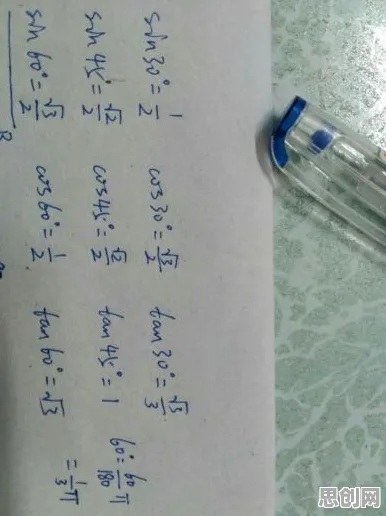 sin30°=1/2 cos30°=√3/2 tan30°=√3/3
sin45°=√2/2 cos45°=√2/2 tan45°=1
sin60°=√3/2 cos60°=1/2 tan60°=√3
60°=60/180π
=1/3π
思创网